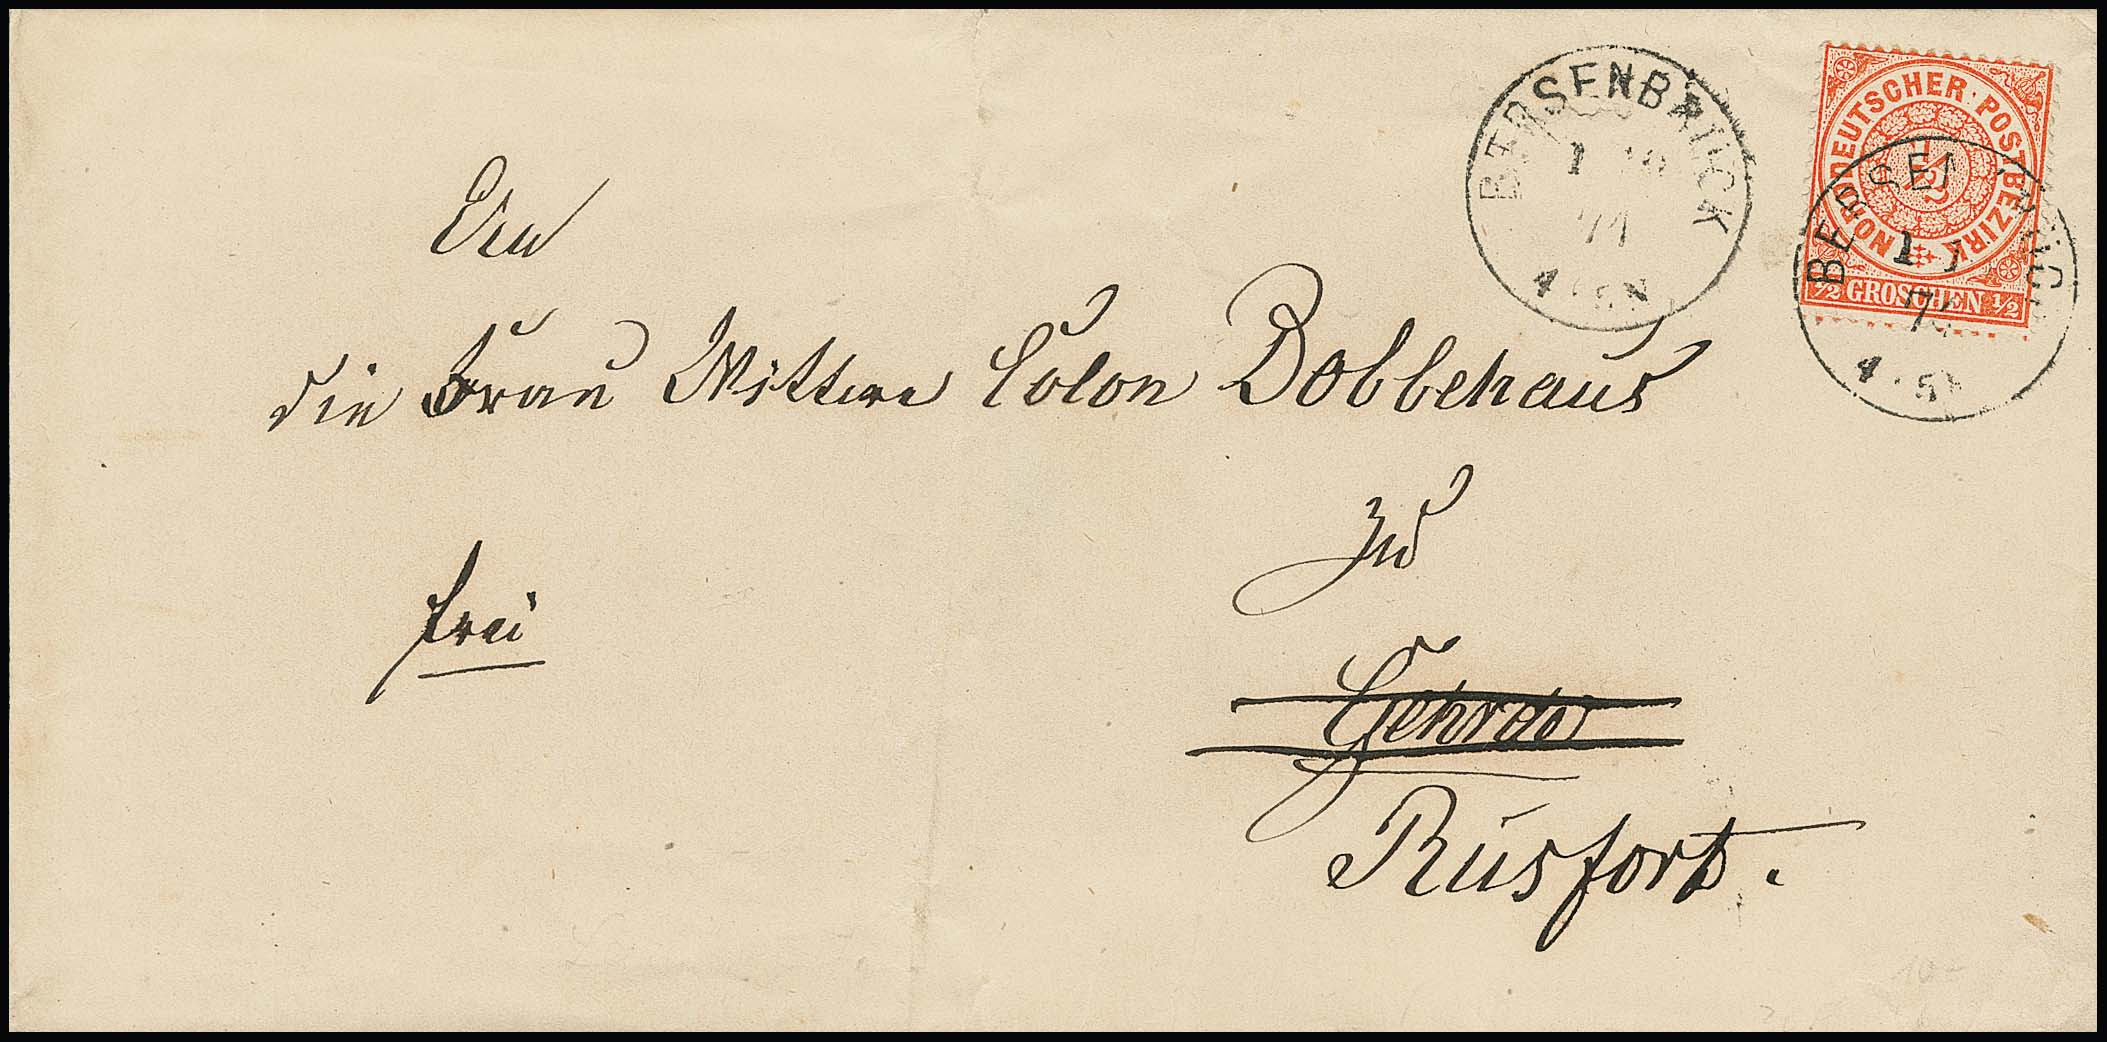 BERSENBRÜCK
1 10
71
4-5N
NORDDEUTSCHER POSTBEZIRK
½ GROSCHEN ½
BERSENBRÜCK
1
71
4-5N
An
die Frau Wittwe Colon Bobbehaus
zu
frei
Gehrde
Rüsfort.